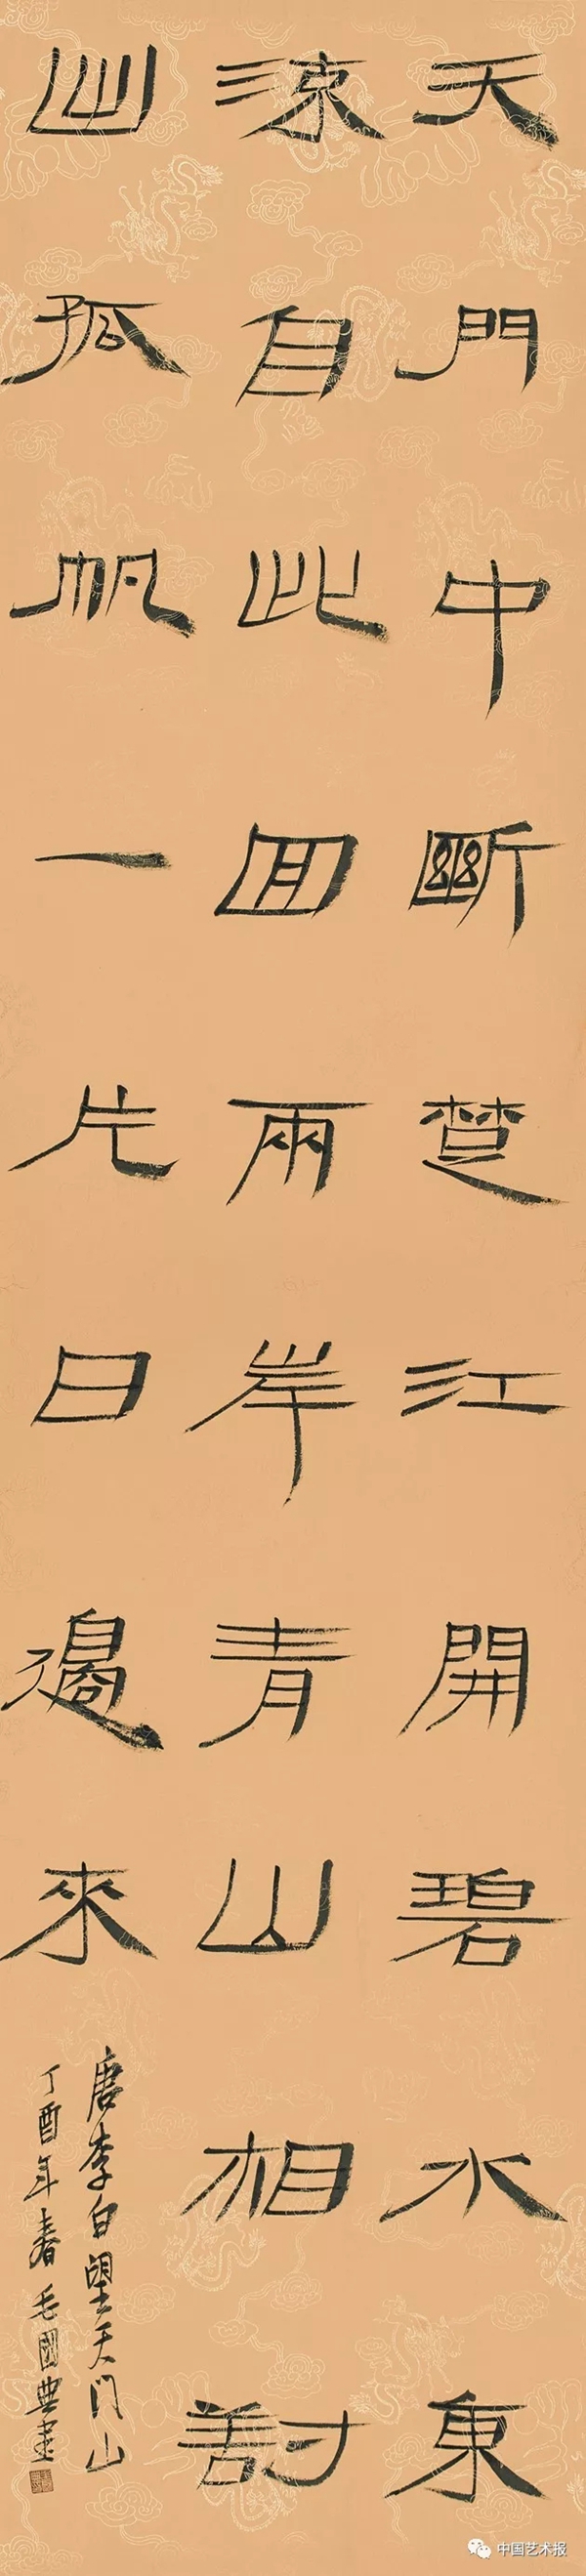 天門中斷楚江開碧水東
流自此回兩岸青山相對
出孤帆一片日邊來
唐李白望天門山
丁酉年春毛國典書
中国艺术报